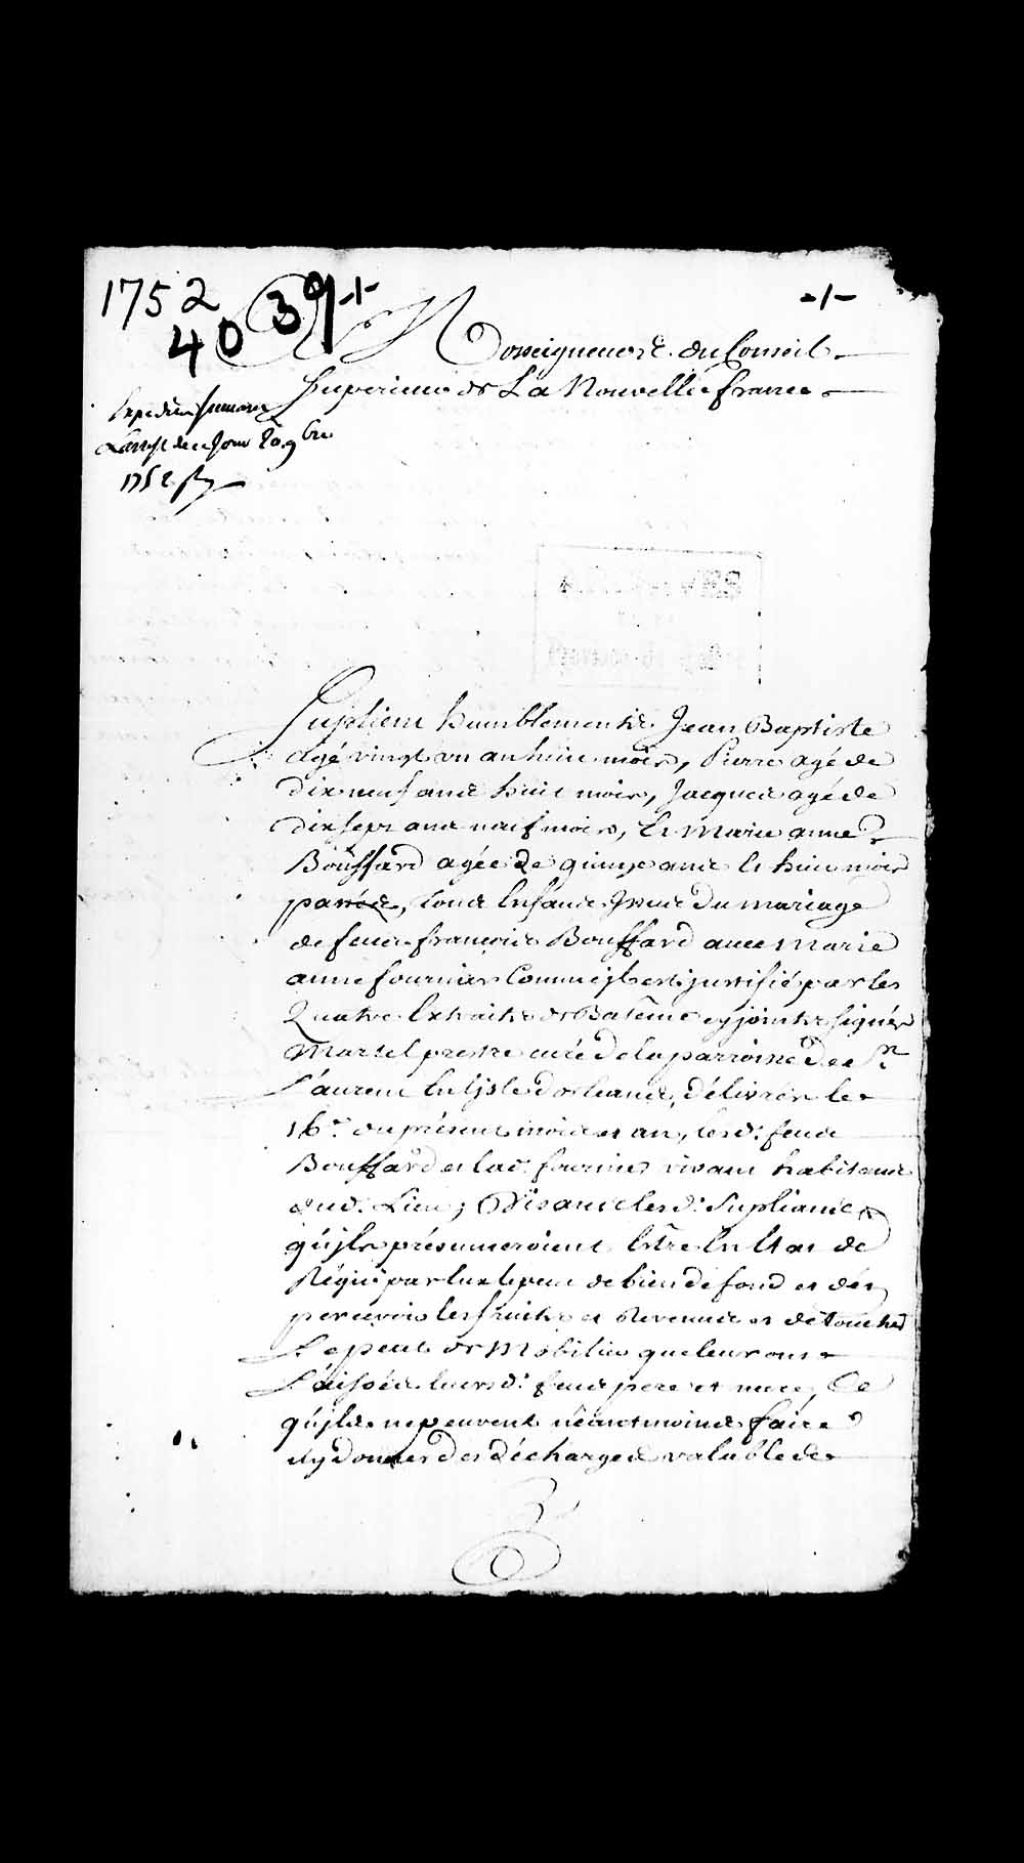 1752
40 39 -/-
-/-
A Nosseigneurs du Conseil
Superieur de La Nouvelle france
Expedié
L'arrest de ce Jour 9bre
1752
Suplient humblement Jean Baptiste
agé vingt un an huit mois, Pierre agé de
dix neuf ans huit mois, Jacques agé de
dix sept ans neuf mois, Et Marie anne
Bouffard agée de quinze ans et huit mois
passés, tous Enfans Issus du mariage
de feus francois Bouffard avec Marie
anne fournier Comme il est justifié par les
Quatre Extraits de Batême cy joints signés
Martel prestre curé de la parroisse de St
Laurent En Isle d'orleans, délivrés le
16e du présent mois et an, lesd: feus
Bouffard et lad: fournier vivans habitans
dud: Lieu; Disans lesd: Suplians
qu'ils présumeroient Estre En Etat de
Régir par Eux le peu de bien de fond et d'en
percevoir les fruits et Revenus et de toucher
Le peu de Mobilier que leur ont
Laissés leursd: feus pere et mere, Ce
qu'ils ne peuvent néantmoins faire
ny donner des décharges valables